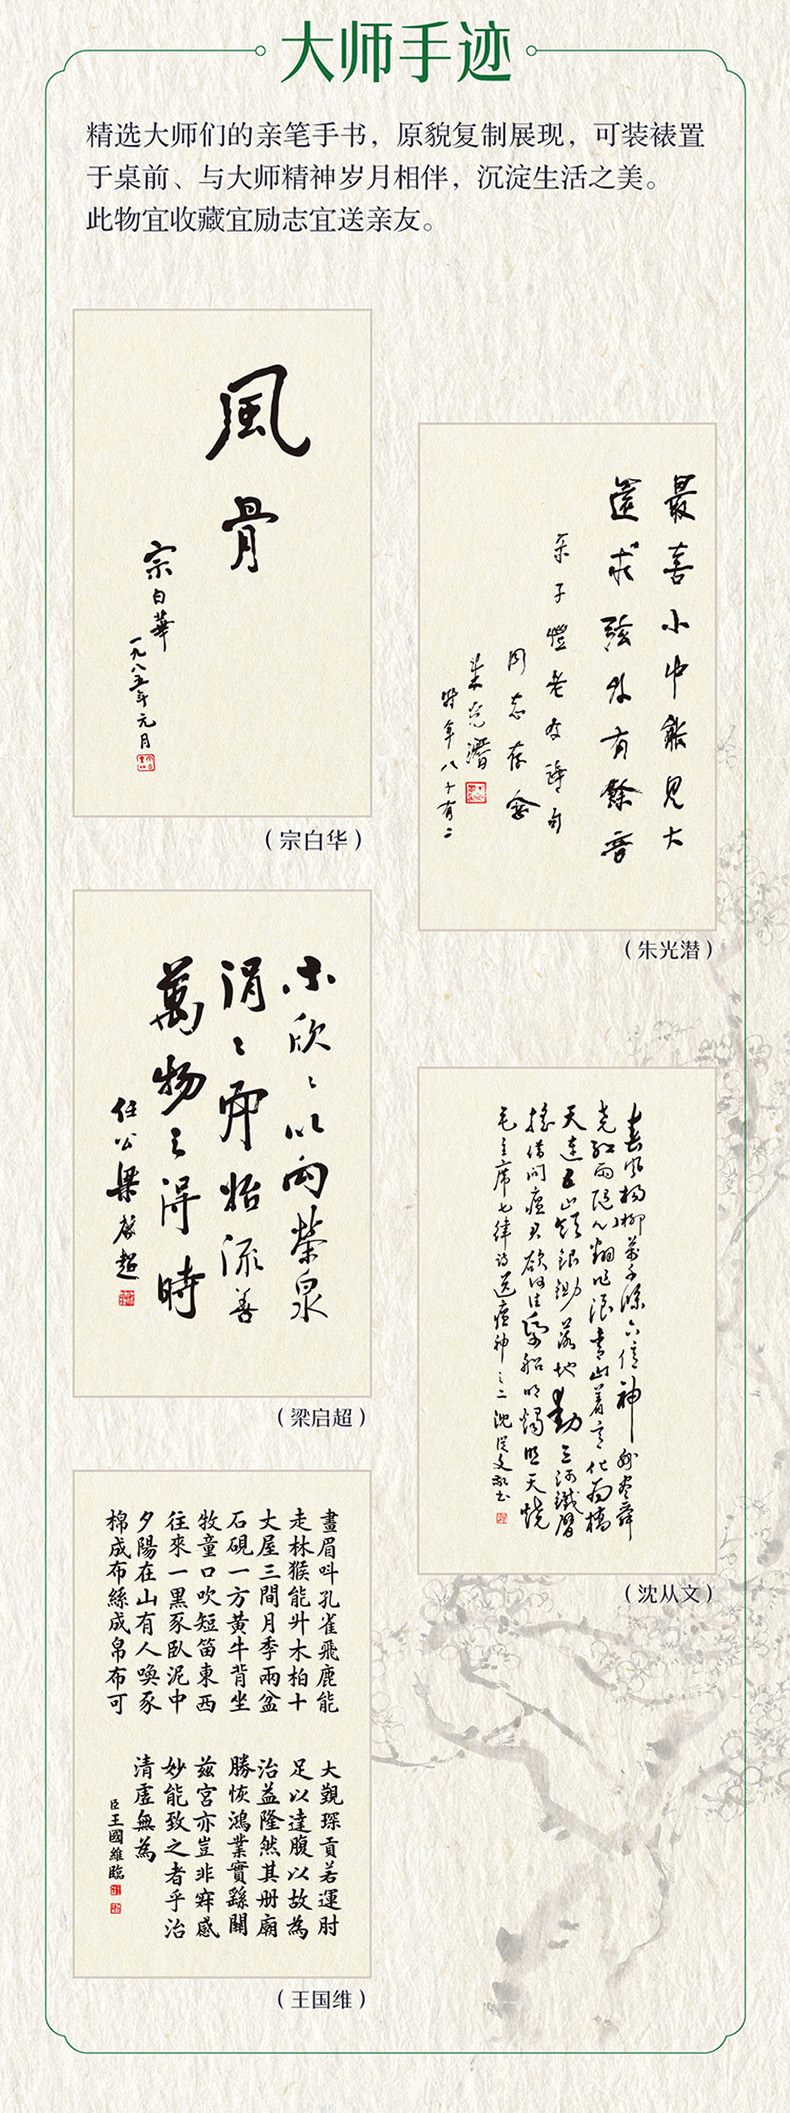 大师手迹
精选大师们的亲笔手书，原貌复制展现，可装裱置
于桌前、与大师精神岁月相伴，沉淀生活之美。
此物宜收藏宜励志宜送亲友。
風骨
宗白華
一九八五年元月
（宗白华）
最喜小中能見大
還求弦外有餘音
余子愷老友詩句
同志存念
朱光潛
時年八十有二
（朱光潜）
木欣〻以向榮泉
涓〻而始流善
萬物之得時
任公梁啟超
（梁启超）
春風楊柳萬千條六億神州盡舜
堯紅雨隨心翻作浪青山著意化為橋
天連五嶺銀鋤落地動三河鐵臂
搖借問瘟君欲何往紙船明燭照天燒
毛主席七律詩送瘟神之二沈從文敬書
（沈从文）
畫眉呌孔雀飛鹿能
走林猴能升木柏十
大屋三間月季兩盆
石硯一方黃牛背坐
牧童口吹短笛東西
往來一黑豕臥泥中
夕陽在山有人喚豕
棉成布絲成帛布可
大覲琛貢若運肘
足以達腹以故為
治益隆然其册廟
勝恢鴻業實繇關
茲宮亦豈非寀感
妙能致之者乎治
清虛無為
臣王國維臨
（王国维）